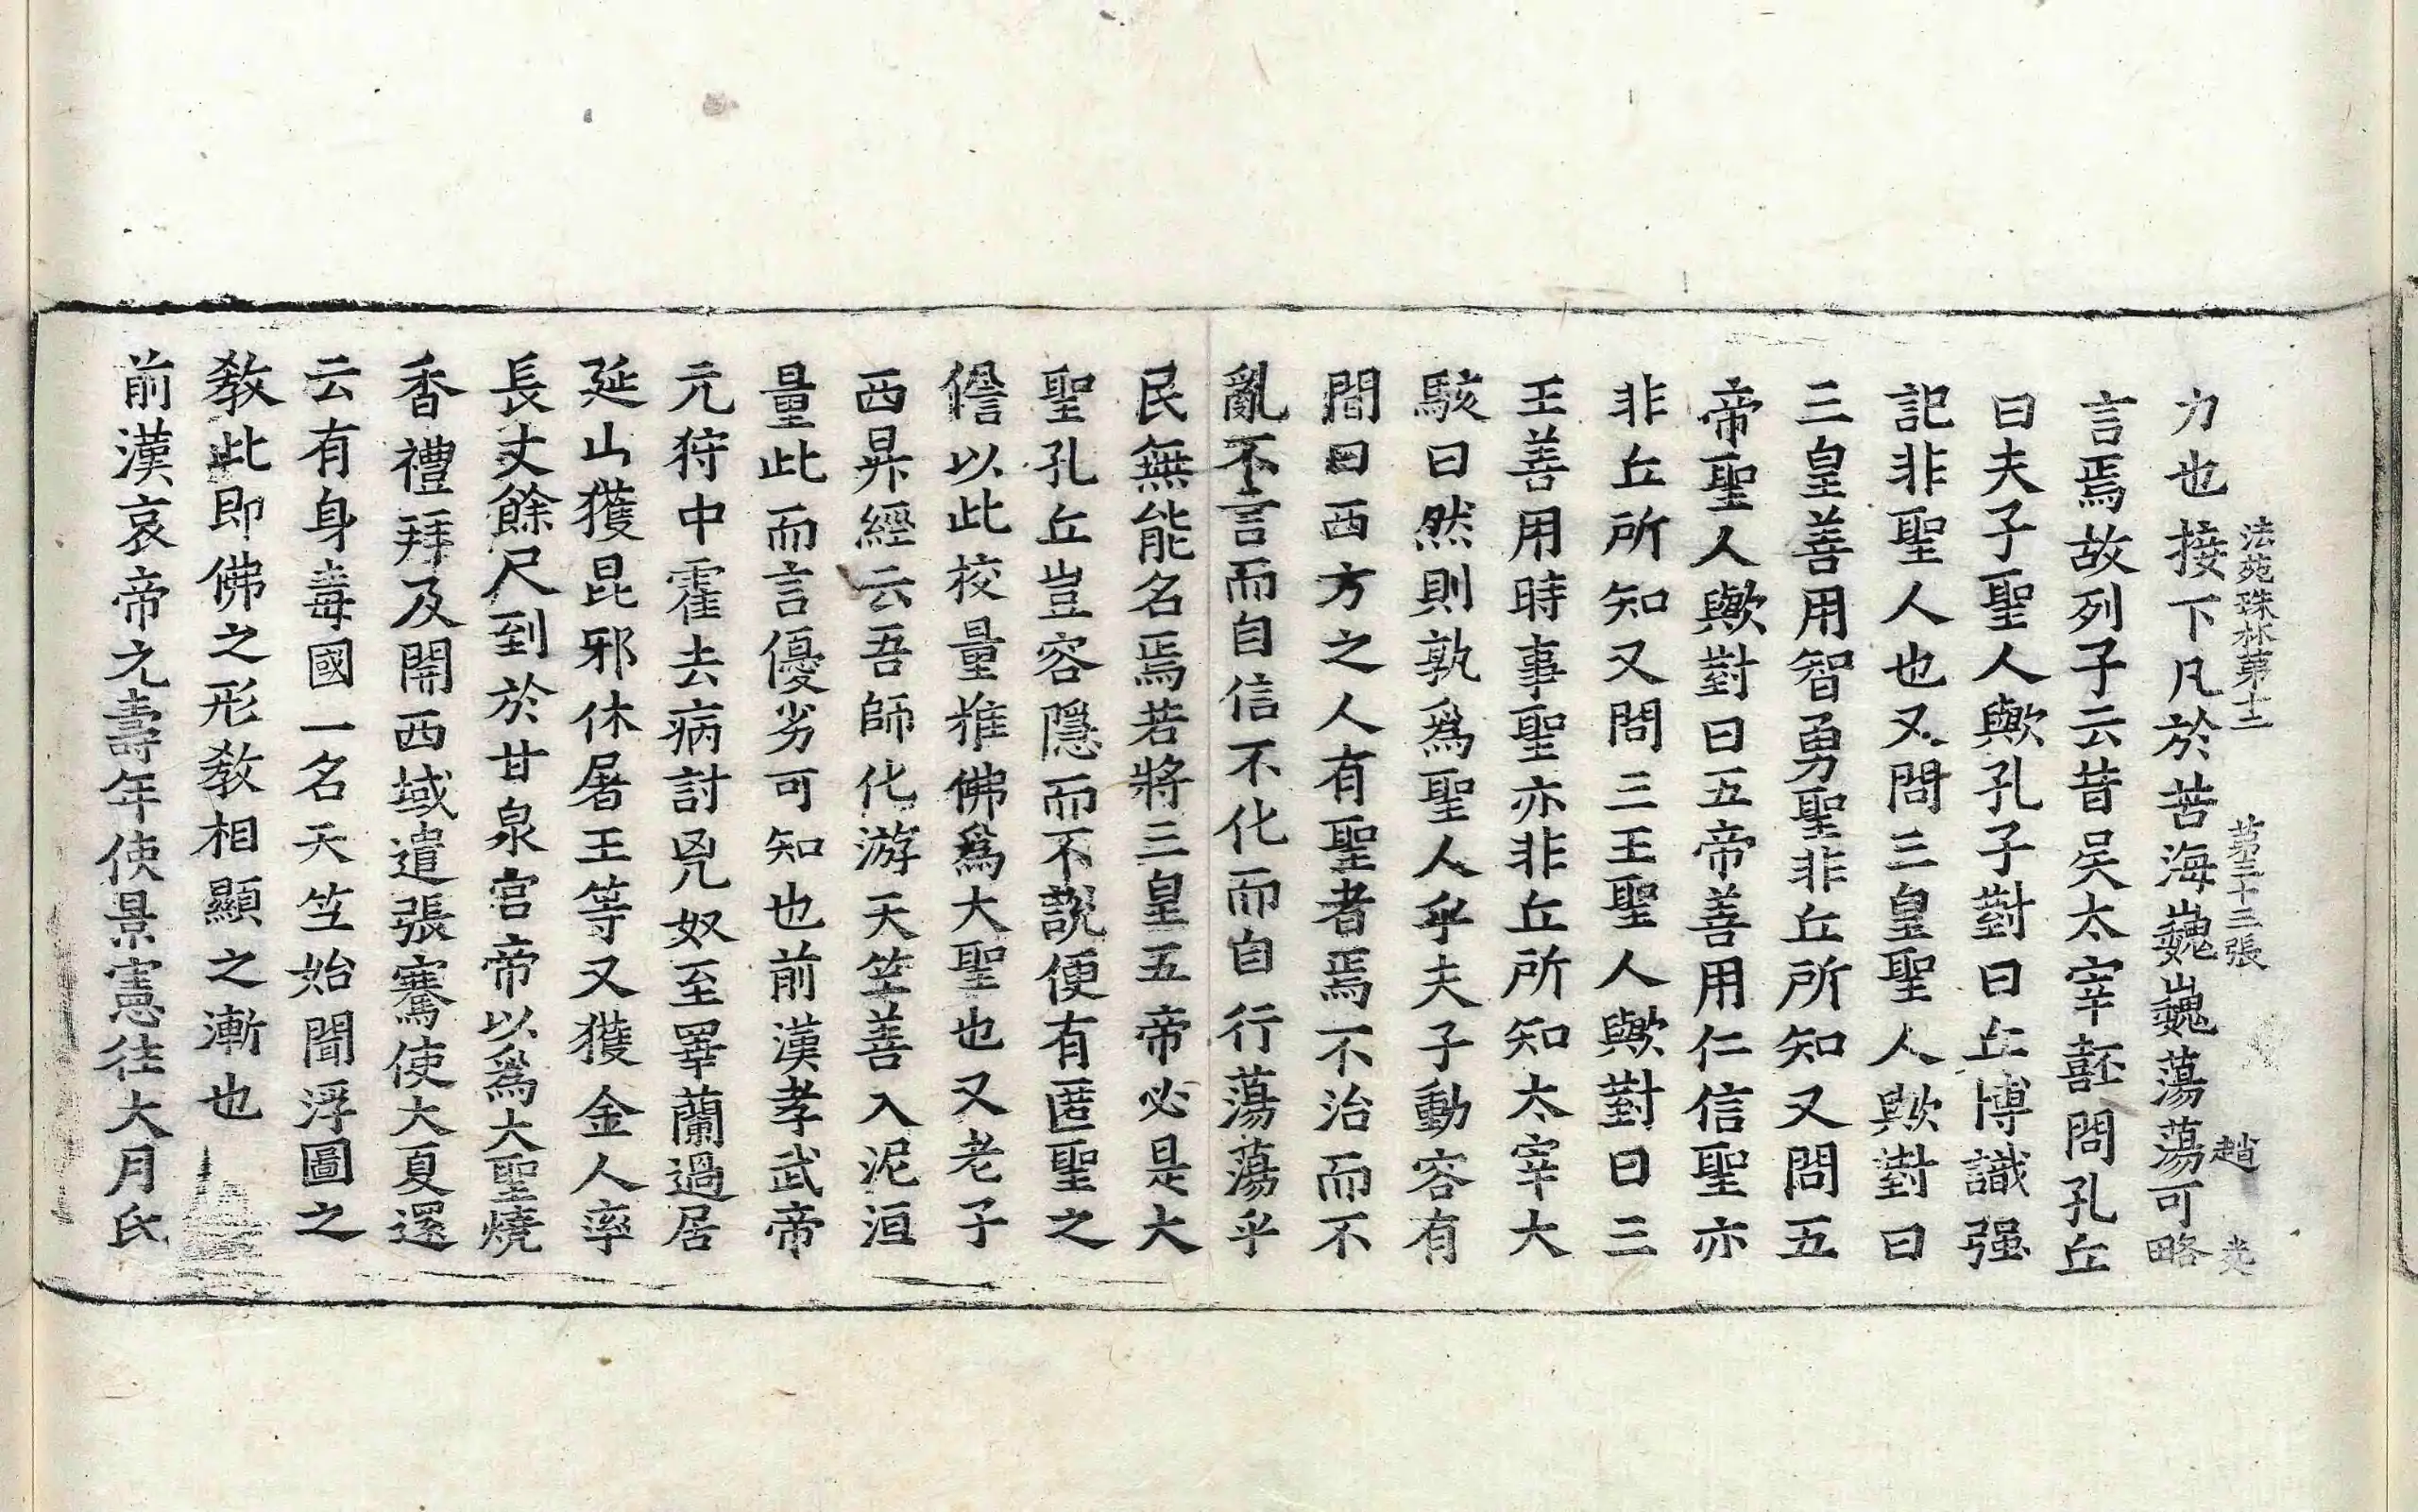 法苑珠林第十二　第二十三張　趙
力也接下凡於苦海巍巍蕩蕩可略
言焉故列子云昔吴太宰嚭問孔丘
曰夫子聖人歟孔子對曰丘博識强
記非聖人也又問三皇聖人歟對曰
三皇善用智勇聖非丘所知又問五
帝聖人歟對曰五帝善用仁信聖亦
非丘所知又問三王聖人歟對曰三
王善用時事聖亦非丘所知太宰大
駭曰然則孰爲聖人乎夫子動容有
間曰西方之人有聖者焉不治而不
亂不言而自信不化而自行蕩蕩乎
民無能名焉若將三皇五帝必是大
聖孔丘豈容隱而不說便有匿聖之
𠎝以此校量推佛爲大聖也又老子
西昇經云吾師化游天竺善入泥洹
量此而言優劣可知也前漢孝武帝
元狩中霍去病討兇奴至睪蘭過居
延山獲昆邪休屠王等又獲金人率
長丈餘尺到於甘泉宫帝以爲大聖燒
香禮拜及開西域遣張騫使大夏還
云有身毒國一名天竺始聞浮圖之
教此即佛之形教相顯之漸也
前漢哀帝元壽年使景憲往大月氏